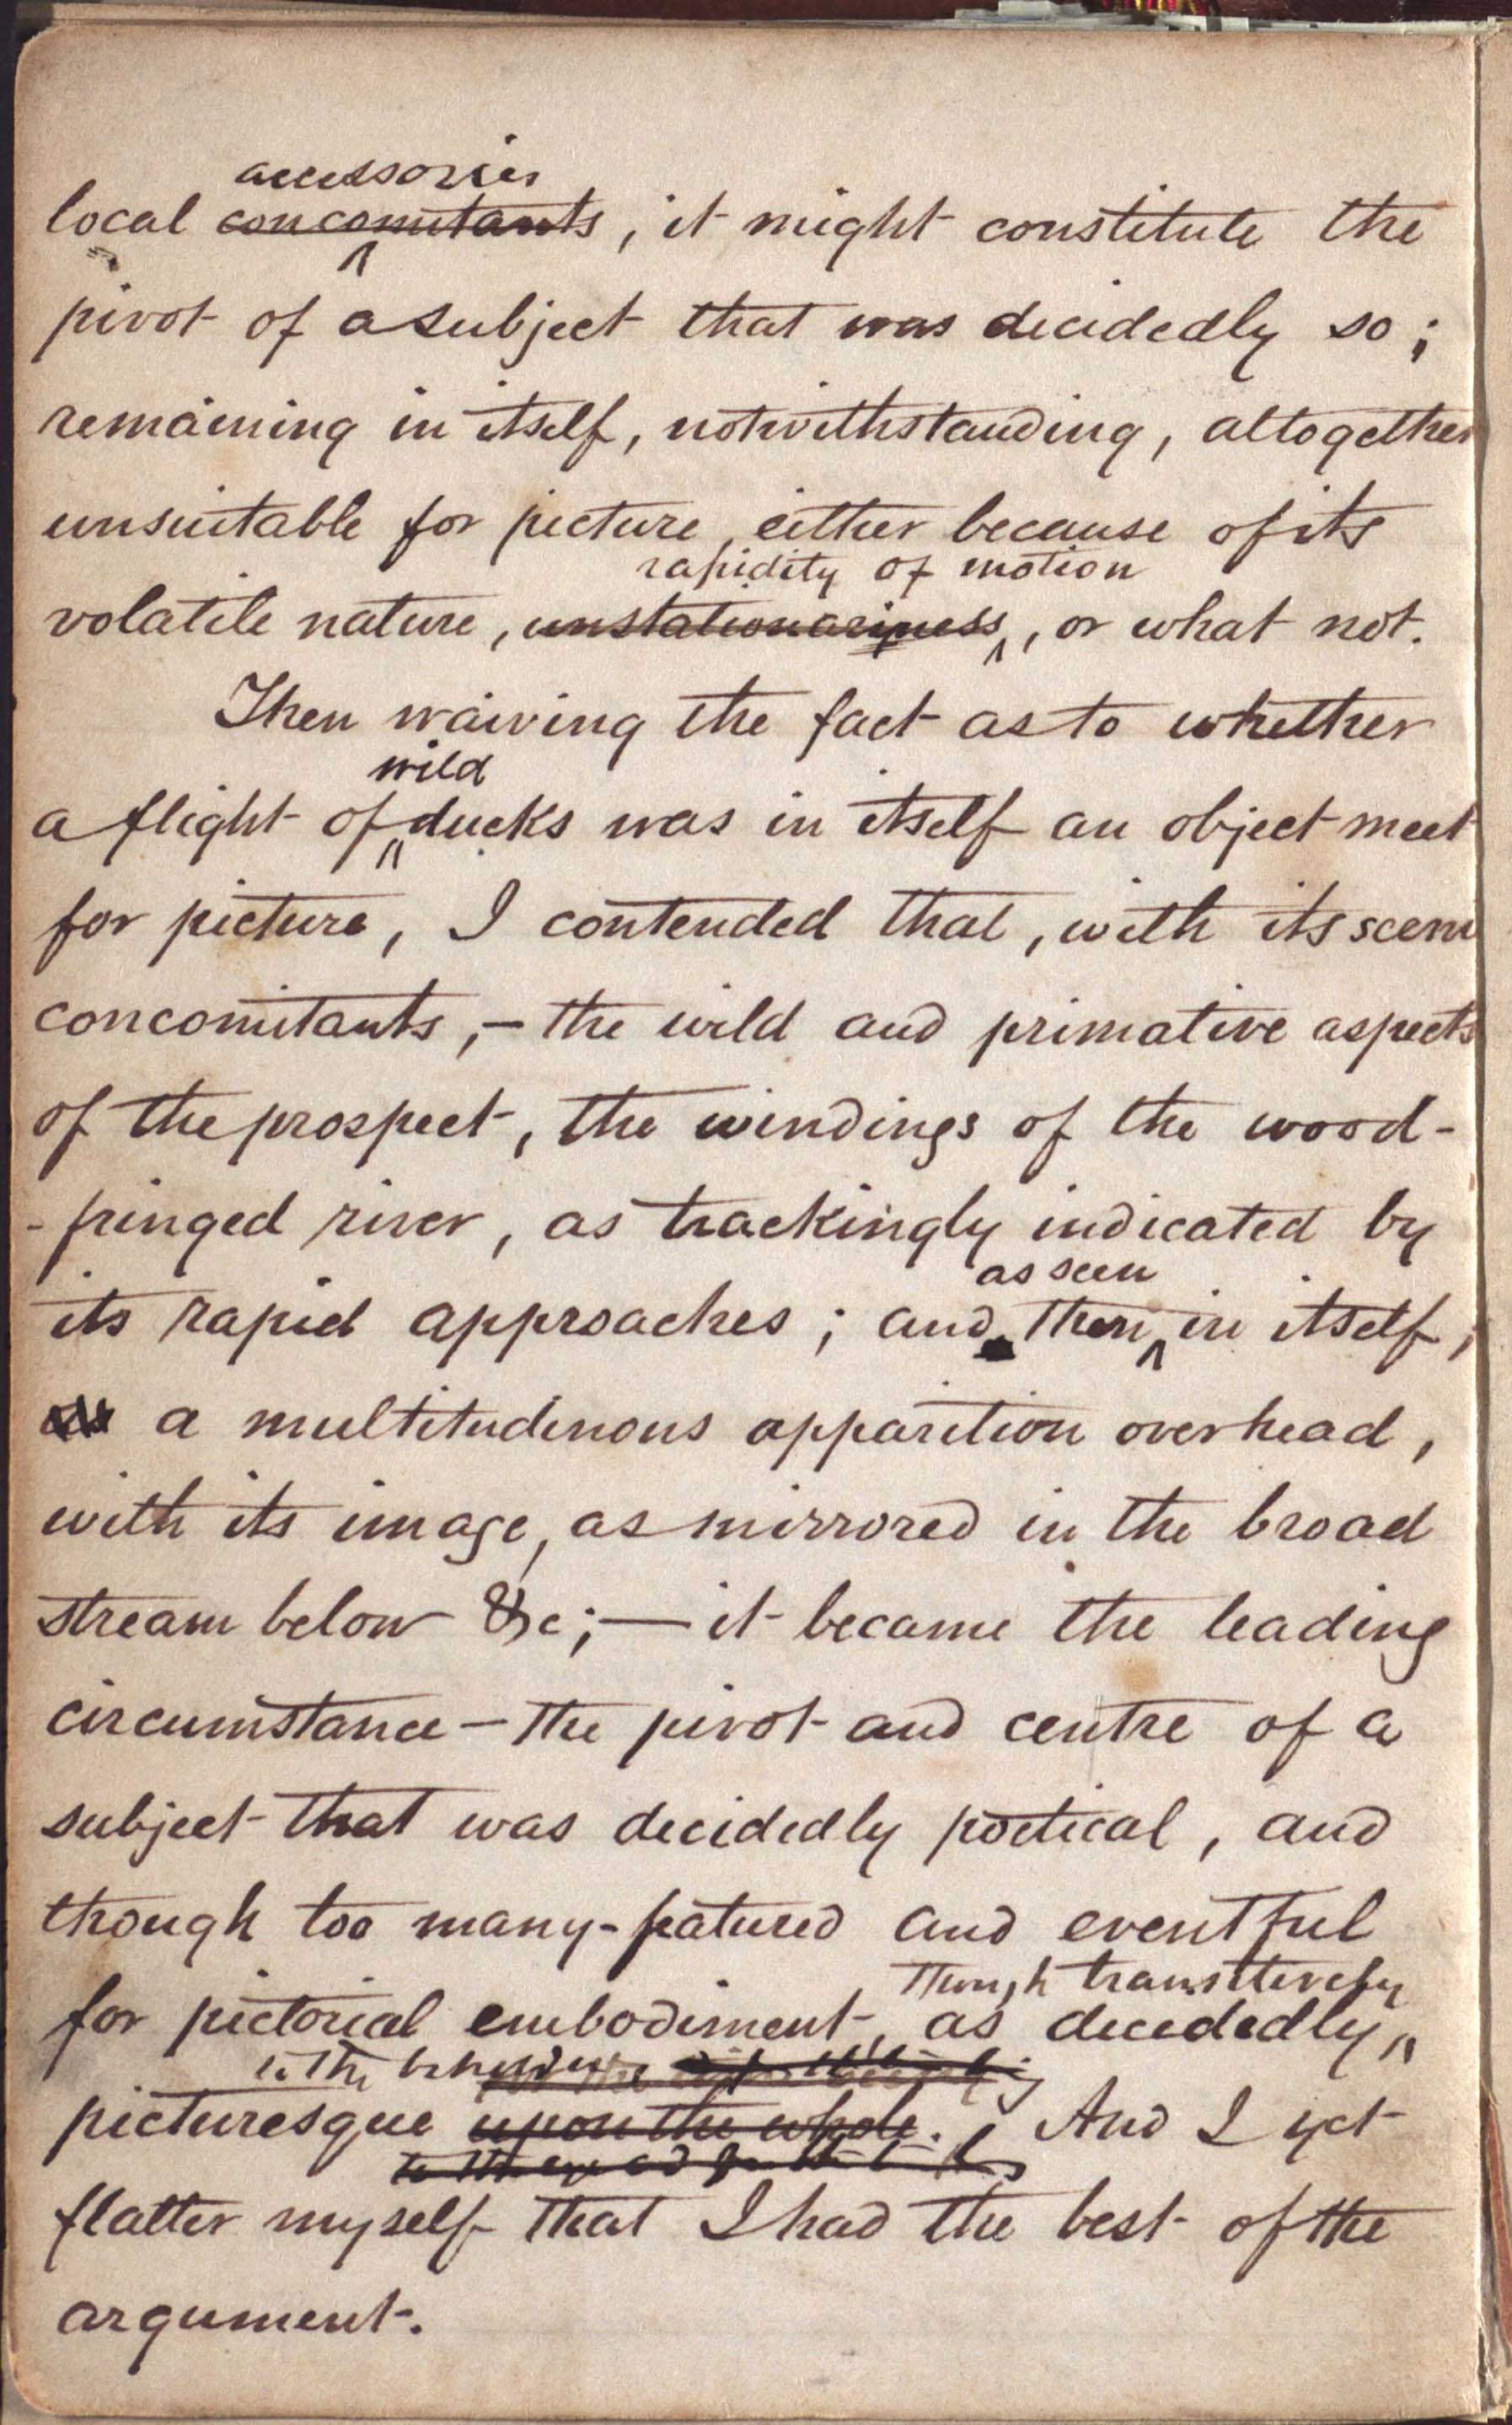 accessories
local concomitants, it might constitute the
pivot of a subject that was decidedly so;
remaining in itself, notwithstanding, altogether
unsuitable for picture, either because of its
rapidity of motion
volatile nature, unstationariness, or what not.
Then waiving the fact as to whether
wild
a flight of ducks was in itself an object meet
for picture, I contended that, with its scenic
concomitants,— the wild and primative aspects
of the prospect, the windings of the wood-
-fringed river, as trackingly indicated by
as seen
its rapid approaches; and then in itself,
as a multitudinous apparition overhead,
with its image, as mirrored in the broad
stream below &c;— it became the leading
circumstance — the pivot and centre of a
subject that was decidedly poetical, and
though too many-featured and eventful
though transitively
for pictorial embodiment, as decidedly
to the beholder
picturesque upon the whole. And I yet
flatter myself that I had the best of the
argument.